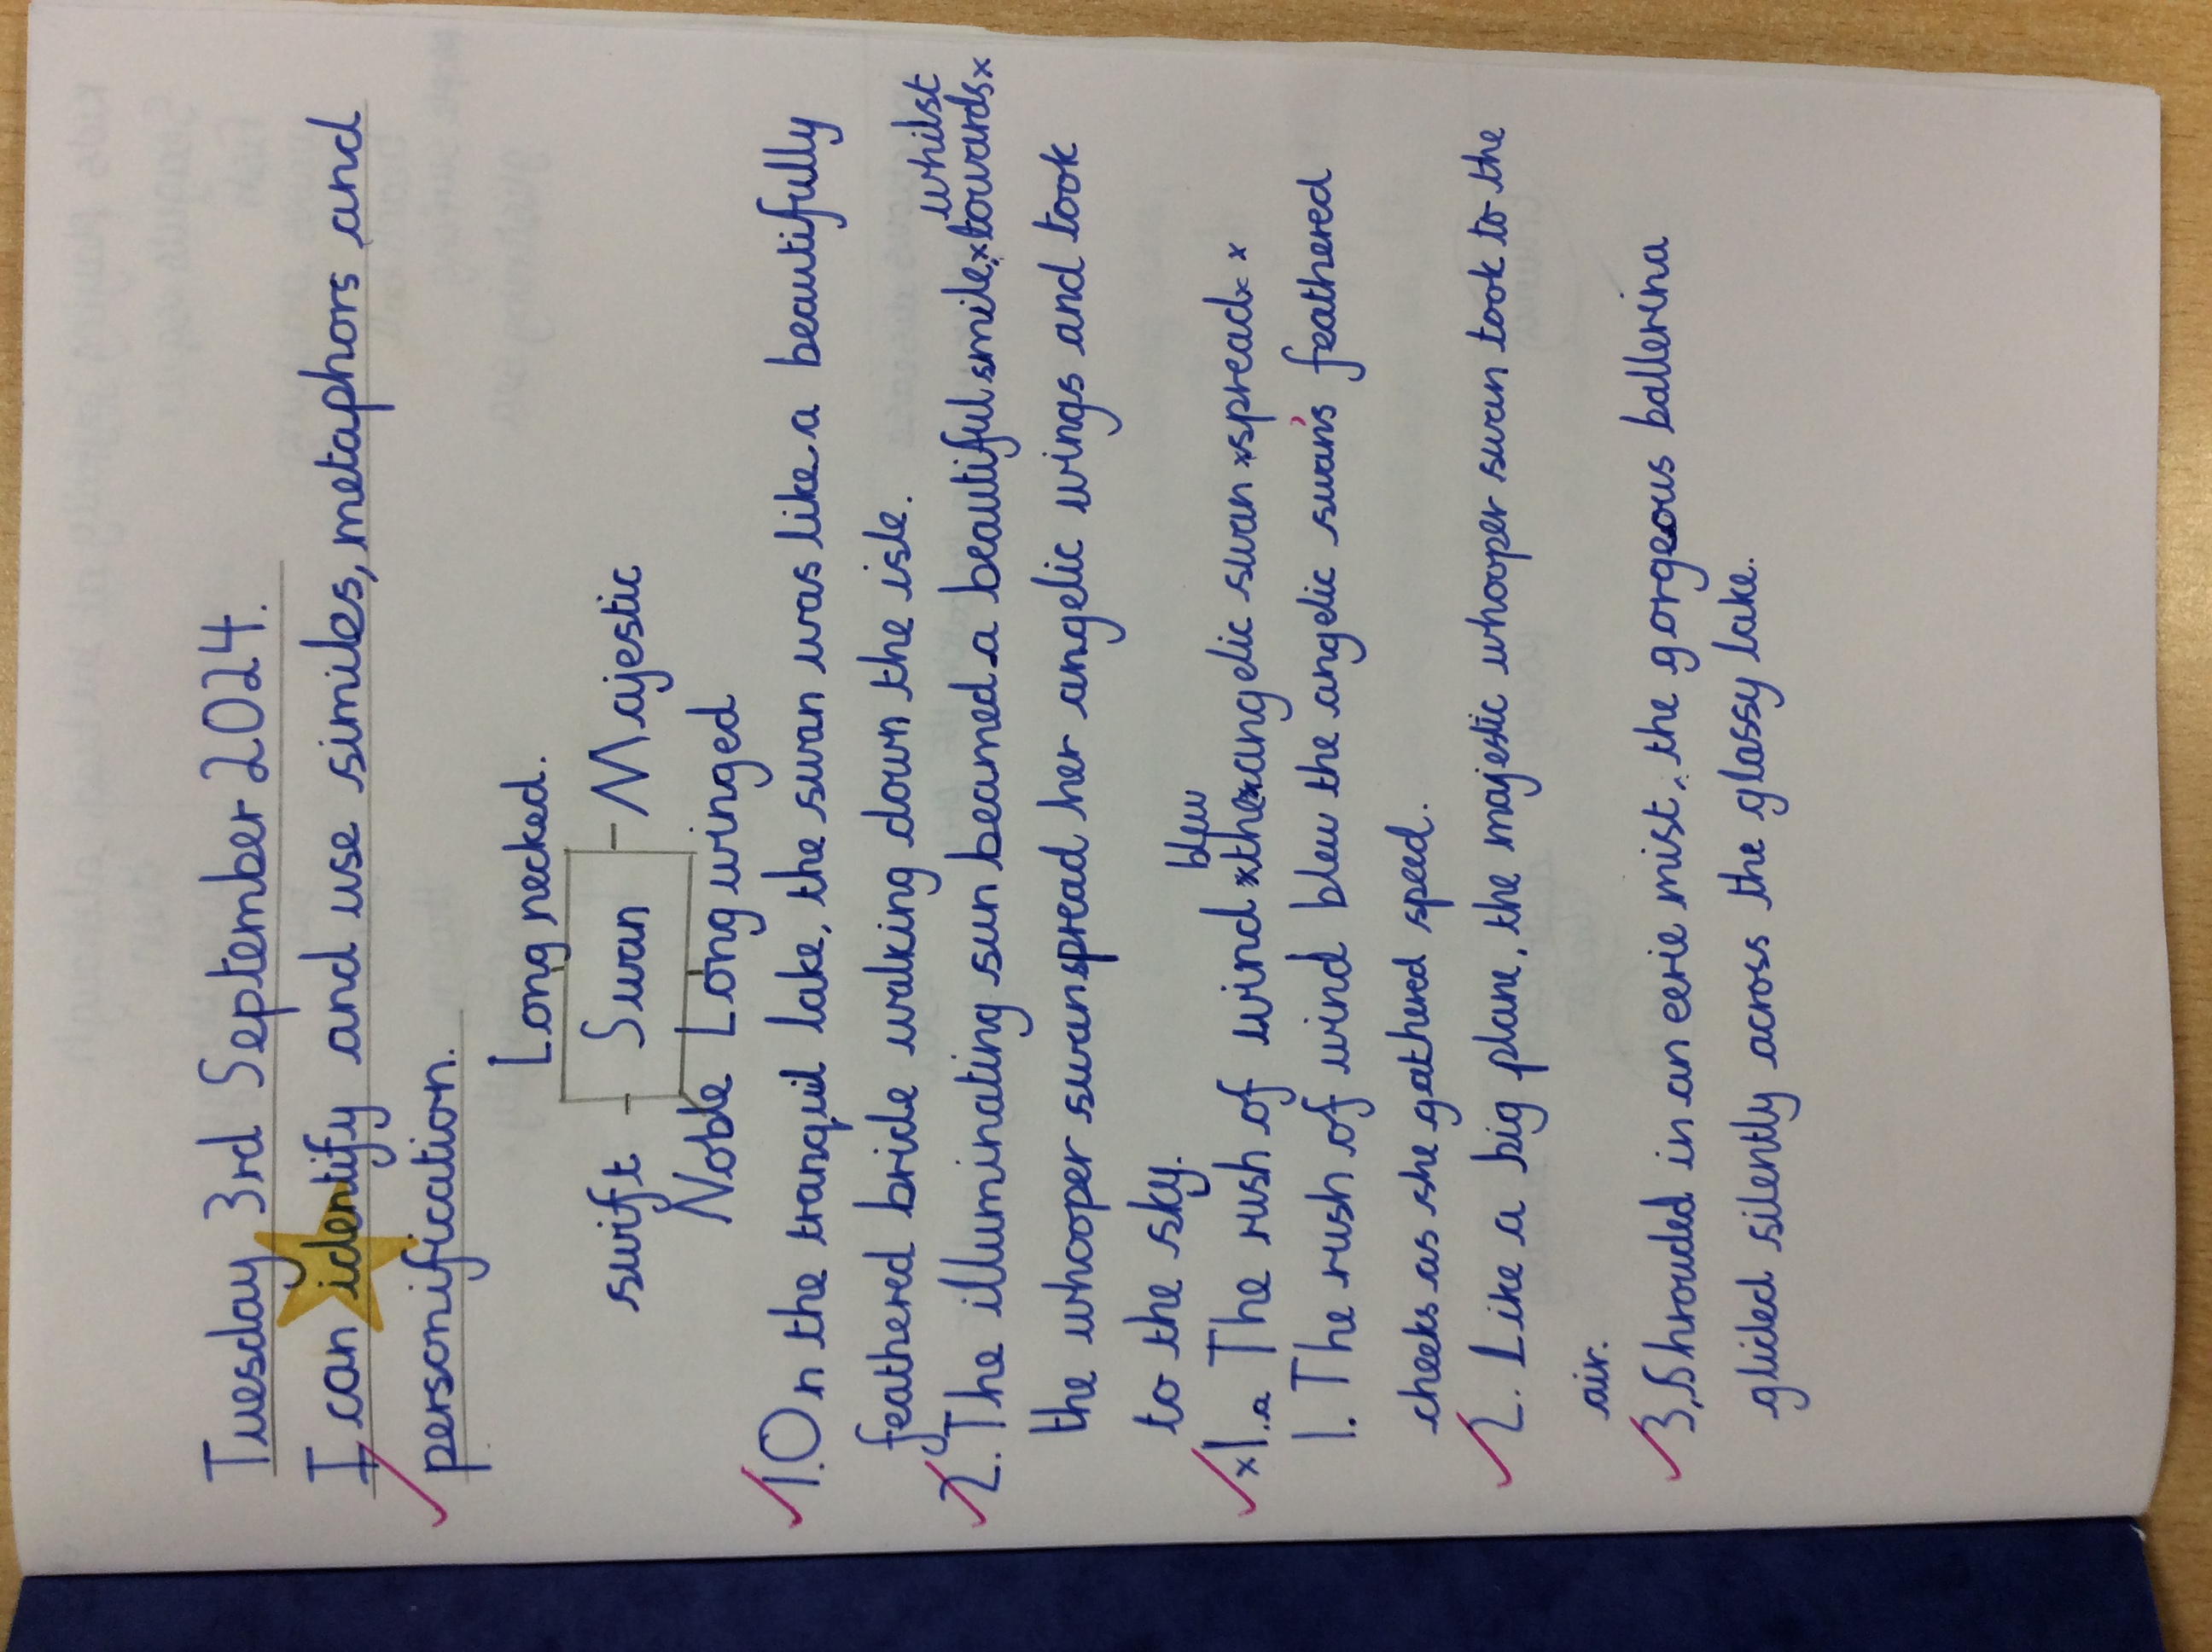 Tuesday 3rd September 2024.
I can identify and use similes, metaphors and
personification.
Long necked.
swift Swan Majestic
Noble Long winged
1. On the tranquil lake, the swan was like a beautifully
feathered bride walking down the isle.
whilst
2. The illuminating sun beamed a beautiful smile, x towards x
the whooper swan spread her angelic wings and took
to the sky.
blew
x 1.a The rush of wind x the x angelic swan x spread x x
1. The rush of wind blew the angelic swan's feathered
cheeks as she gathered speed.
2. Like a big plane, the majestic whooper swan took to the
air.
3. Shrouded in an eerie mist, the gorgeous ballerina
glided silently across the glassy lake.